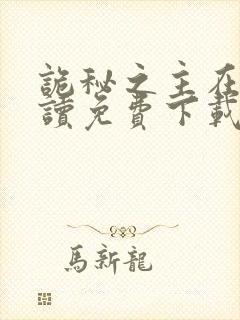 詭秘之主在
讀免費下載
馬新龍